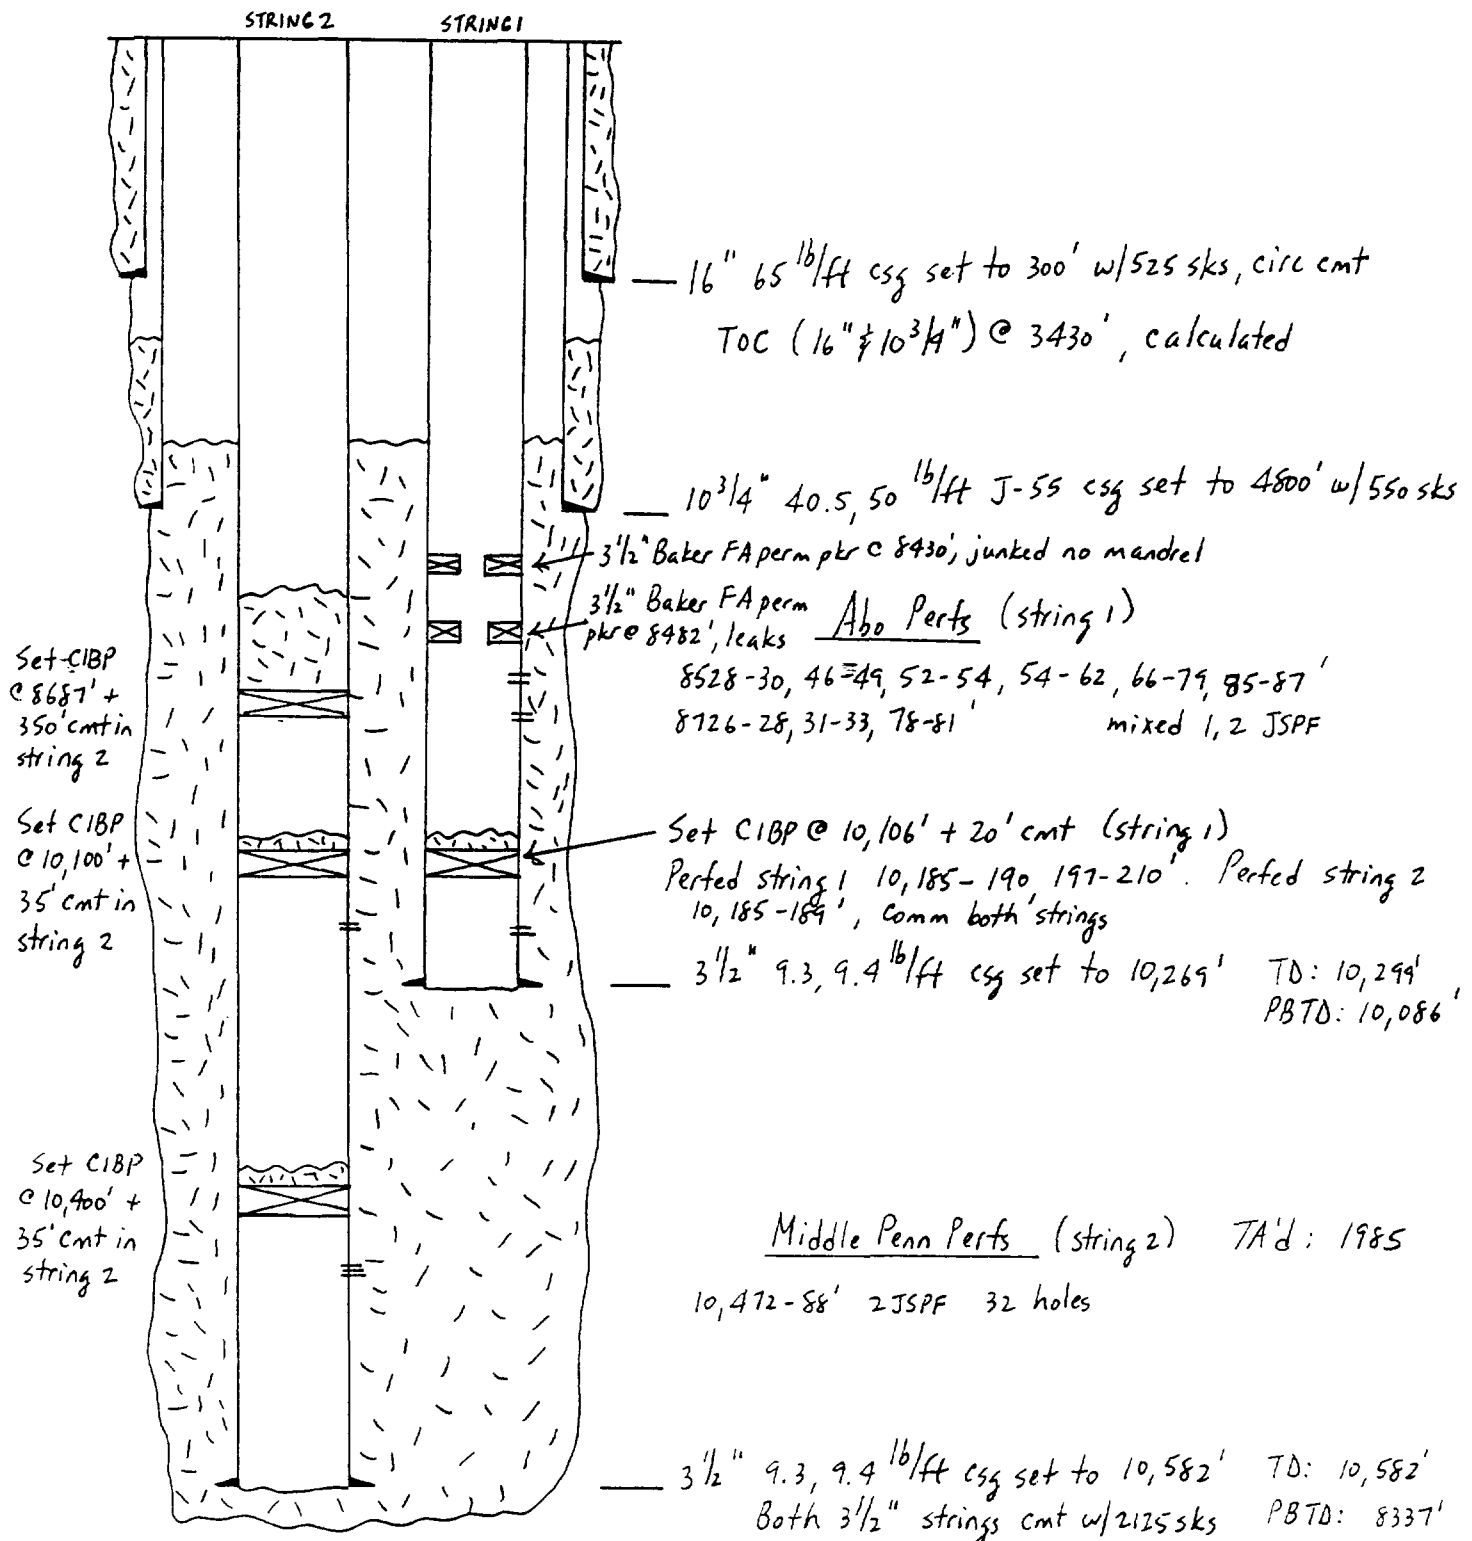 STRING 2
STRING 1
16" 65 lb/ft csg set to 300' w/525 sks, circ cmt
TOC (16" & 10 3/4") @ 3430', calculated
10 3/4" 40.5, 50 lb/ft J-55 csg set to 4800' w/550 sks
3 1/2" Baker FA perm pkr @ 8430', junked no mandrel
3 1/2" Baker FA perm
pkr @ 8482', leaks
Abo Perfs (string 1)
8528-30, 46-49, 52-54, 54-62, 66-79, 85-87'
8726-28, 31-33, 78-81' mixed 1, 2 JSPF
Set CIBP
@ 8687' +
350' cmt in
string 2
Set CIBP
@ 10,100' +
35' cmt in
string 2
Set CIBP @ 10,106' + 20' cmt (string 1)
Perfed string 1 10,185-190, 197-210'. Perfed string 2
10,185-189', comm both strings
3 1/2" 9.3, 9.4 lb/ft csg set to 10,269' TD: 10,299'
PBTD: 10,086'
Set CIBP
@ 10,400' +
35' cmt in
string 2
Middle Penn Perfs (string 2) TA'd: 1985
10,472-88' 2 JSPF 32 holes
3 1/2" 9.3, 9.4 lb/ft csg set to 10,582' TD: 10,582'
Both 3 1/2" strings cmt w/2125 sks PBTD: 8337'